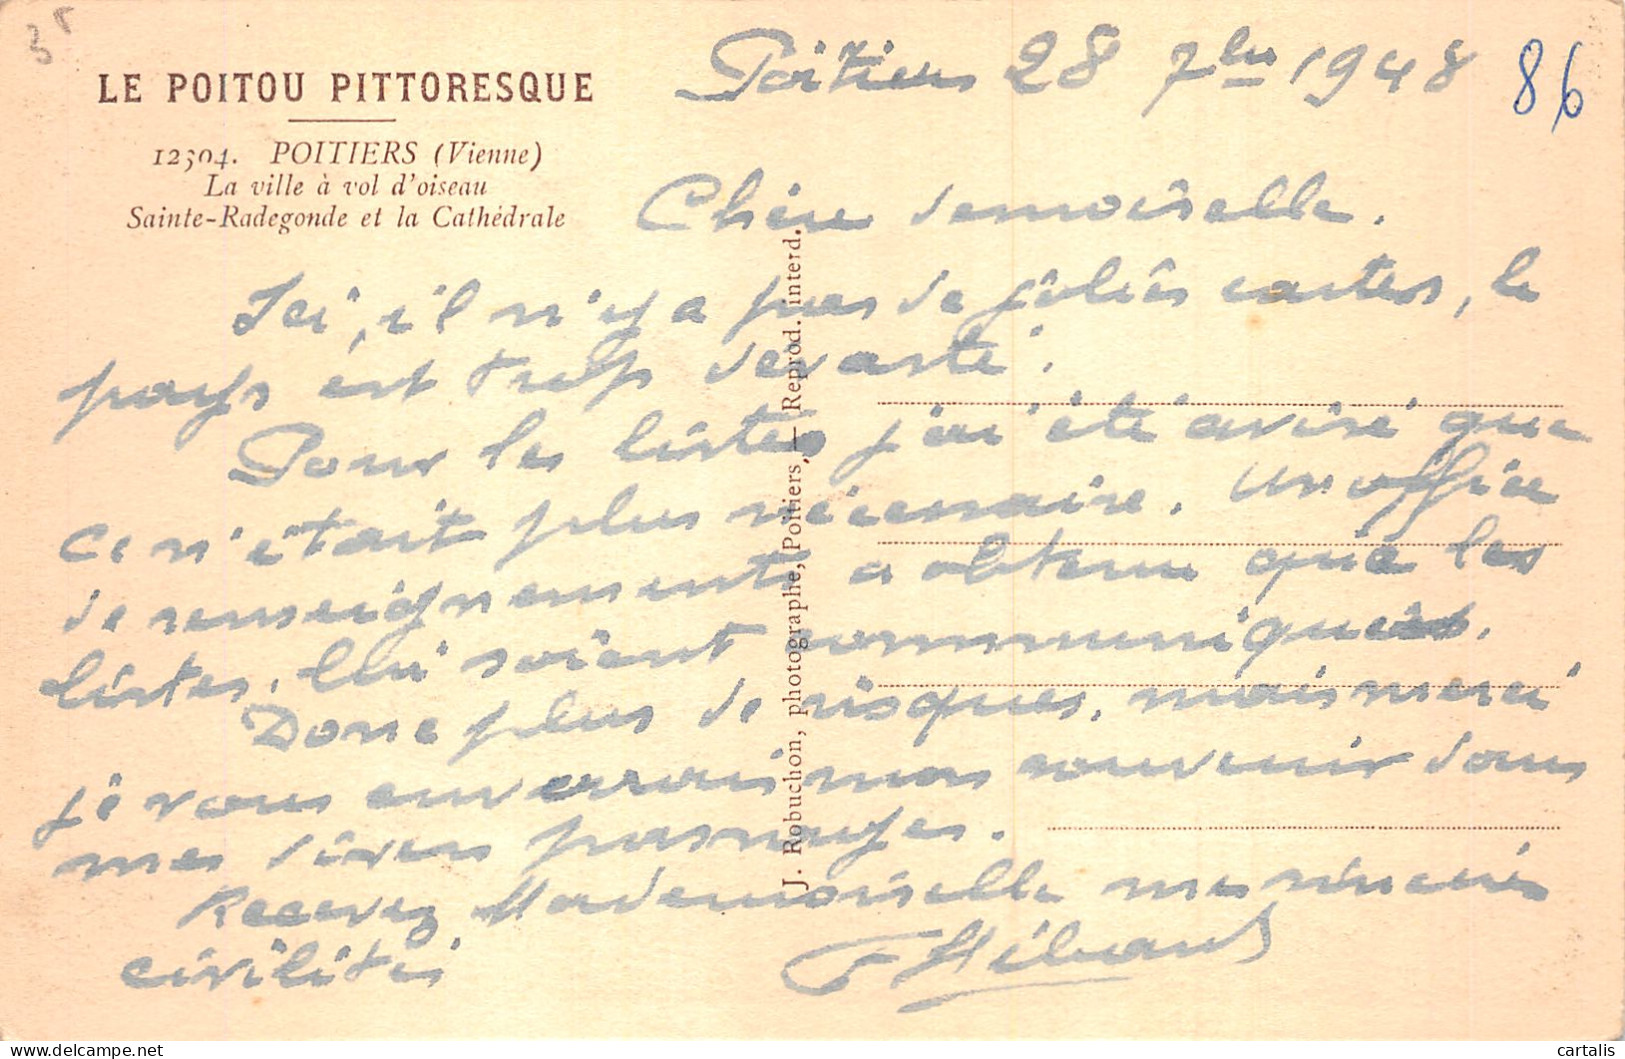 LE POITOU PITTORESQUE
12504. POITIERS (Vienne)
La ville à vol d'oiseau
Sainte-Radegonde et la Cathédrale
J. Robuchon, photographe, Poitiers, — Reprod. interd.
86
Poitiers 28 7bre 1948
Chère demoiselle.
Ici, il n'y a pas de jolies cartes, le
pays est trop devasté.
Pour les listes j'ai été avisé que
ce n'était plus nécessaire. Un office
de renseignements a obtenu que les
listes lui soient communiqués.
Donc plus de risques, mais merci
je vous enverrai mon souvenir dans
mes divers passages.
Recevez Mademoiselle mes sincères
civilités
F Hébrard
cartalis